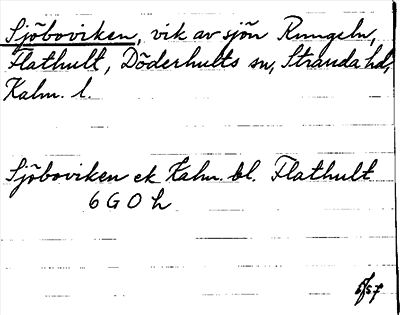 Sjöboviken, vik av sjön Rungeln,
Flathult, Döderhults sn, Stranda hd,
Kalm. l.
Sjöboviken ek Kalm. bl. Flathult
6 G 0 h